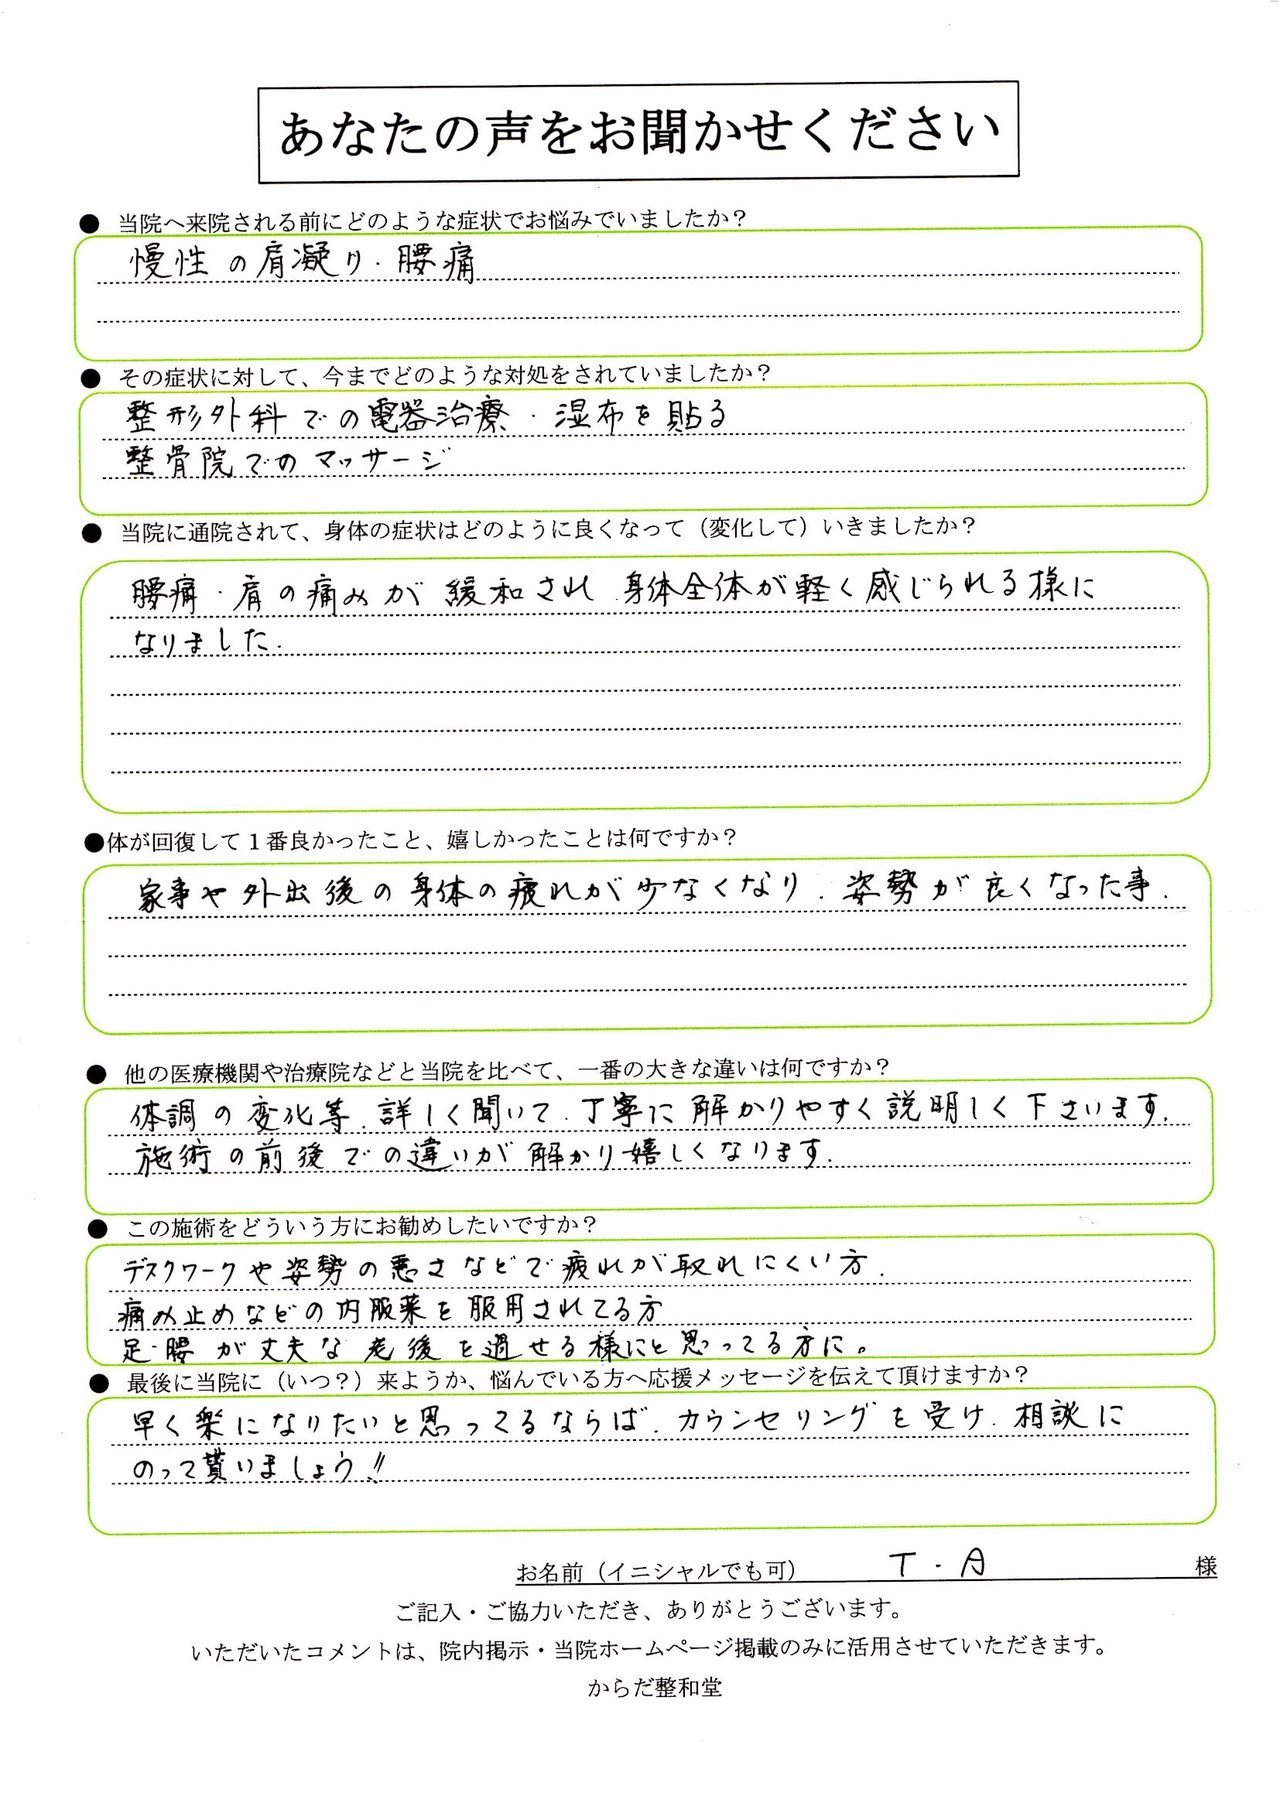 あなたの声をお聞かせください
● 当院へ来院される前にどのような症状でお悩みでいましたか？
慢性の肩凝り・腰痛
● その症状に対して、今までどのような対処をされていましたか？
整形外科での電器治療・湿布を貼る
整骨院でのマッサージ
● 当院に通院されて、身体の症状はどのように良くなって（変化して）いきましたか？
腰痛・肩の痛みが緩和され、身体全体が軽く感じられる様に
なりました．
●体が回復して１番良かったこと、嬉しかったことは何ですか？
家事や外出後の身体の疲れが少なくなり、姿勢が良くなった事．
● 他の医療機関や治療院などと当院を比べて、一番の大きな違いは何ですか？
体調の変化等、詳しく聞いて、丁寧に解かりやすく説明しく下さいます．
施術の前後での違いが解かり嬉しくなります．
● この施術をどういう方にお勧めしたいですか？
デスクワークや姿勢の悪さなどで疲れが取れにくい方．
痛み止めなどの内服薬を服用されてる方
足・腰が丈夫な老後を過せる様にと思ってる方に。
● 最後に当院に（いつ？）来ようか、悩んでいる方へ応援メッセージを伝えて頂けますか？
早く楽になりたいと思ってるならば、カウンセリングを受け、相談に
のって貰いましょう!!
お名前（イニシャルでも可） T・A 様
ご記入・ご協力いただき、ありがとうございます。
いただいたコメントは、院内掲示・当院ホームページ掲載のみに活用させていただきます。
からだ整和堂